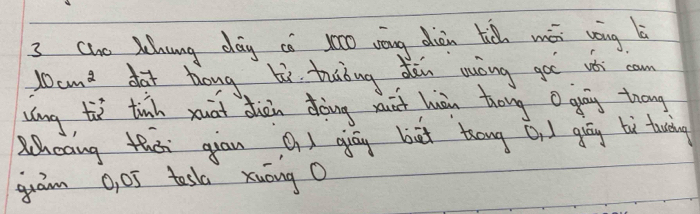 3 Cho khung dây có 1000 vòng diện tích mỗi vòng là
10cm² đặt trong từ trường đến vuông góc với cảm
ứng từ tính xuất điện động xuất hiện trong 0 giây trong
khoảng thời gian 0,1 giây biết trong 0,1 giây từ trường
giảm 0,05 tesla xuống 0